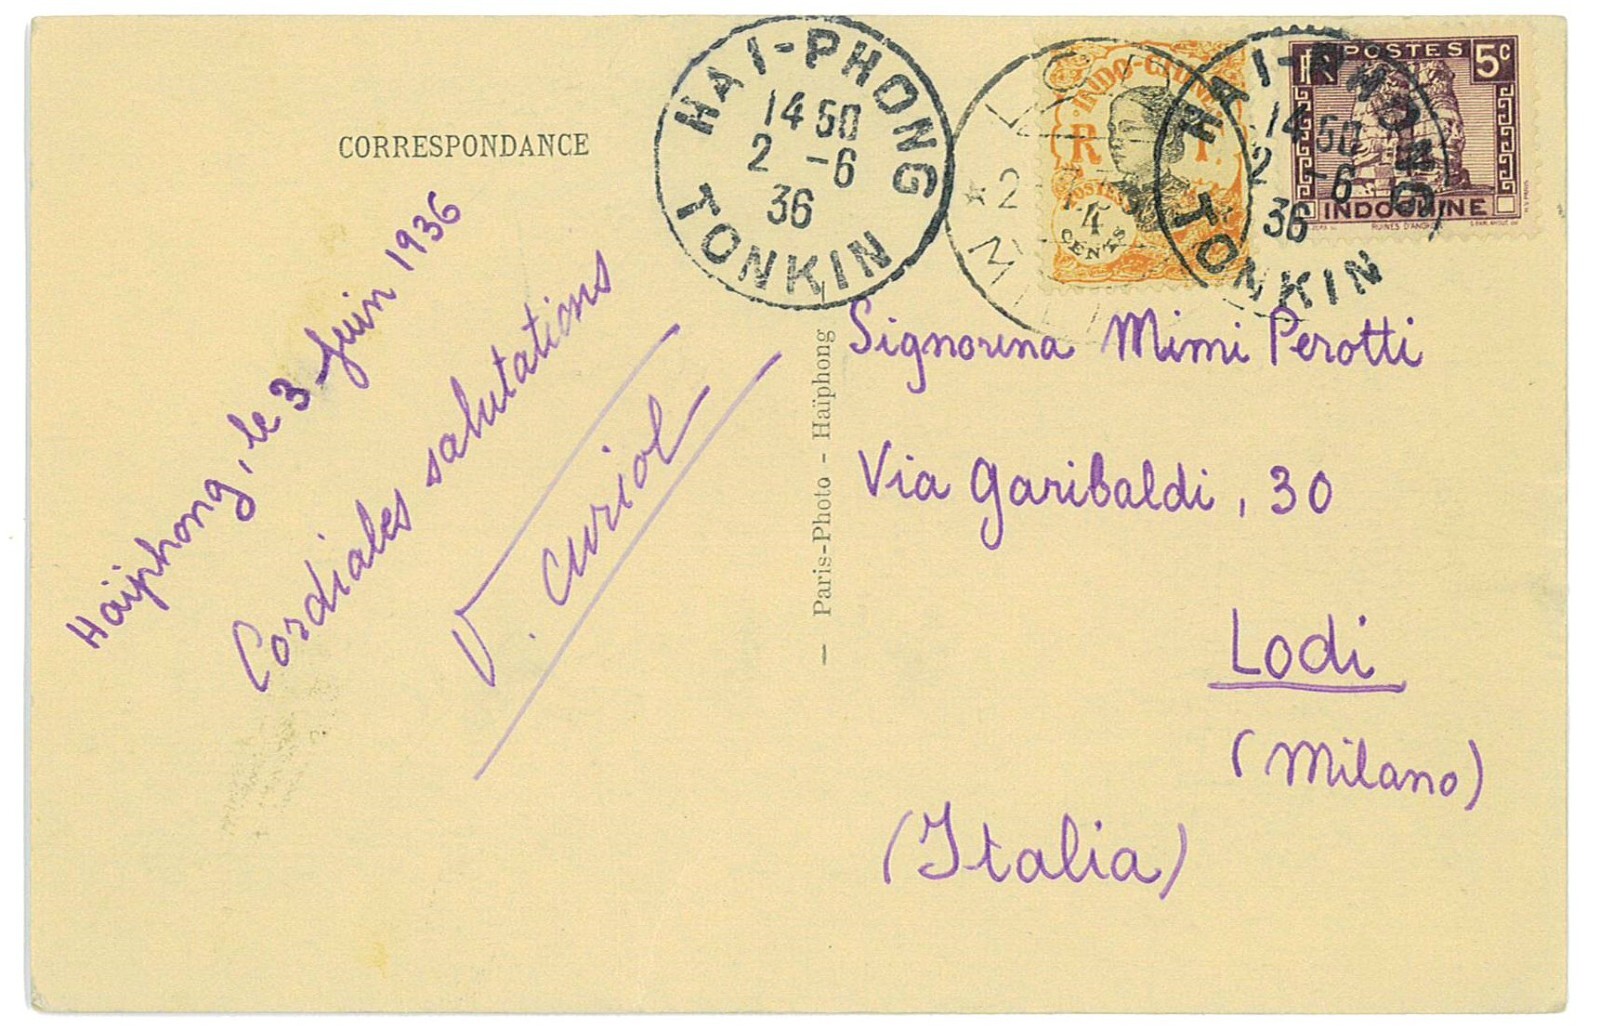 CORRESPONDANCE
Haïphong, le 3 Juin 1936
Cordiales salutations
V. Curiol
— Paris-Photo - Haïphong —
HAI-PHONG
14 50
2 -6
36
TONKIN
INDO-CHINE
R F.
POSTES
4
CENTS
HAI-PHONG
14 50
2 -6
36
TONKIN
RF POSTES 5c
INDOCHINE
RUINES D'ANGKOR
Signorina Mimi Perotti
Via Garibaldi, 30
Lodi
(Milano)
(Italia)